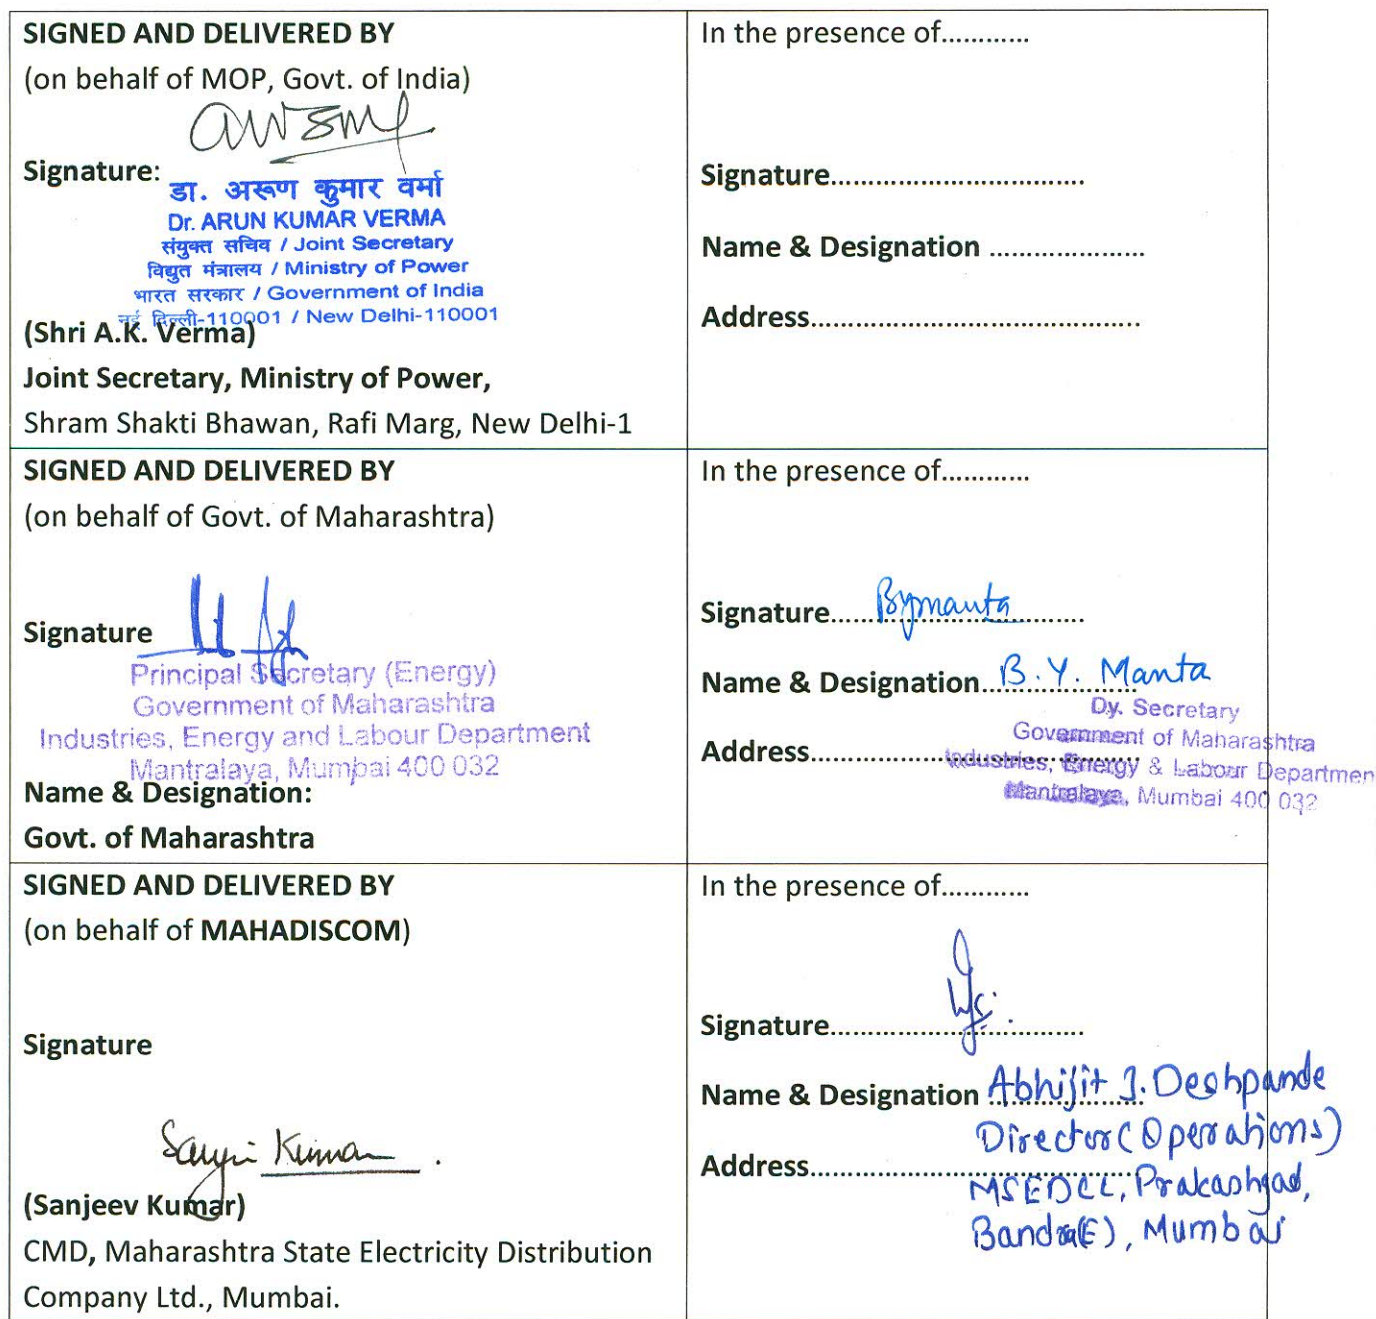 SIGNED AND DELIVERED BY
(on behalf of MOP, Govt. of India)
Signature:
डा. अरूण कुमार वर्मा
Dr. ARUN KUMAR VERMA
संयुक्त सचिव / Joint Secretary
विद्युत मंत्रालय / Ministry of Power
भारत सरकार / Government of India
नई दिल्ली-110001 / New Delhi-110001
(Shri A.K. Verma)
Joint Secretary, Ministry of Power,
Shram Shakti Bhawan, Rafi Marg, New Delhi-1
In the presence of............
Signature...................................
Name & Designation .....................
Address.............................................
SIGNED AND DELIVERED BY
(on behalf of Govt. of Maharashtra)
Signature
Principal Secretary (Energy)
Government of Maharashtra
Industries, Energy and Labour Department
Mantralaya, Mumbai 400 032
Name & Designation:
Govt. of Maharashtra
In the presence of............
Signature...... Bymanta
Name & Designation B. Y. Manta
Dy. Secretary
Government of Maharashtra
Address..................
Industries, Energy & Labour Departmen
Mantralaya, Mumbai 400 032
SIGNED AND DELIVERED BY
(on behalf of MAHADISCOM)
Signature
Sanjeev Kumar
(Sanjeev Kumar)
CMD, Maharashtra State Electricity Distribution
Company Ltd., Mumbai.
In the presence of............
Signature...................................
Name & Designation Abhijit J. Deshpande
Director (Operations)
Address.............................................
MSEDCL, Prakashgad,
Bandra(E), Mumbai